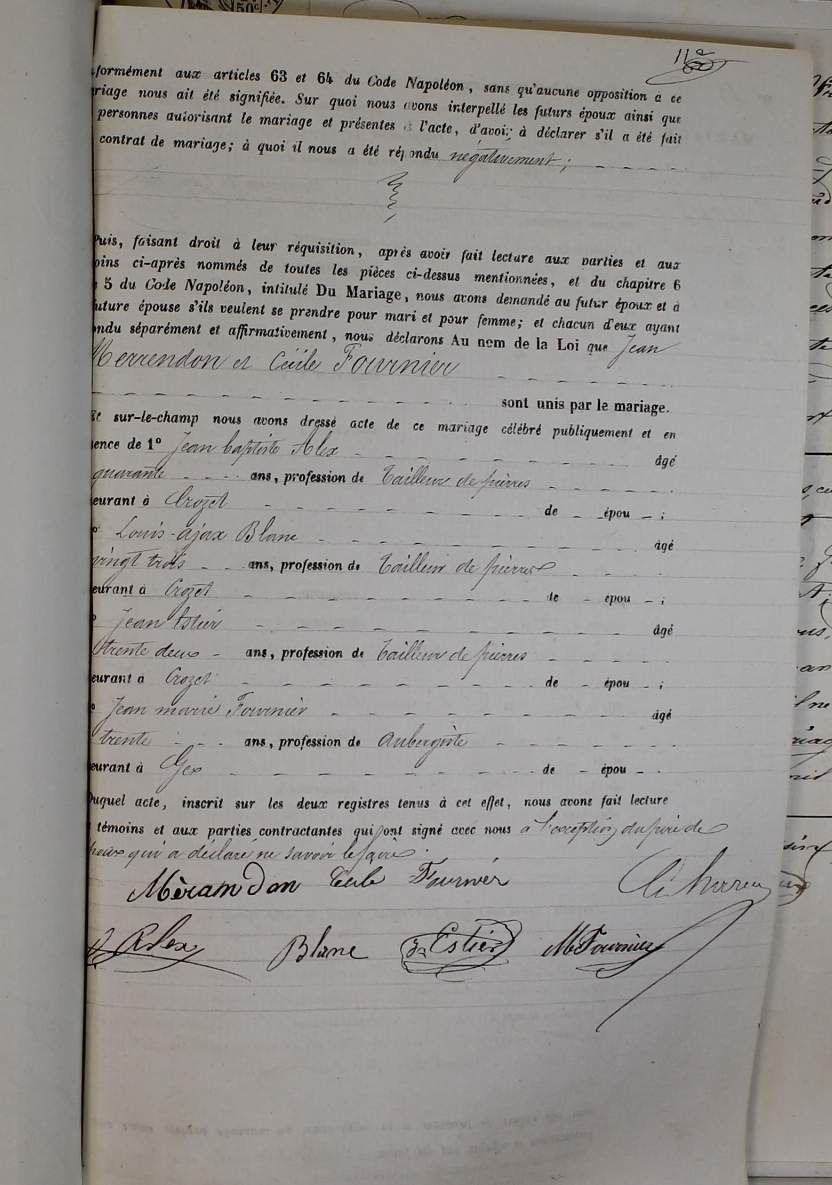 50c
11e
60
formément aux articles 63 et 64 du Code Napoléon, sans qu'aucune opposition à ce
riage nous ait été signifiée. Sur quoi nous avons interpellé les futurs époux ainsi que
personnes autorisant le mariage et présentes à l'acte, d'avoir à déclarer s'il a été fait
contrat de mariage; à quoi il nous a été répondu négativement;
Puis, faisant droit à leur réquisition, après avoir fait lecture aux parties et aux
oins ci-après nommés de toutes les pièces ci-dessus mentionnées, et du chapitre 6
5 du Code Napoléon, intitulé Du Mariage, nous avons demandé au futur époux et à
future épouse s'ils veulent se prendre pour mari et pour femme; et chacun d'eux ayant
ondu séparément et affirmativement, nous déclarons Au nom de la Loi que Jean
Merrendon et Cécile Fournier
sont unis par le mariage.
sur-le-champ nous avons dressé acte de ce mariage célébré publiquement et en
sence de 1° Jean baptiste Alex âgé
quarante ans, profession de Tailleur de pierres
eurant à Crozet de épou ;
Louis-ajax Blanc âgé
vingt trois ans, profession de Tailleur de pierres
eurant à Crozet de épou ;
Jean Estier âgé
trente deux ans, profession de Tailleur de pierres
eurant à Crozet de épou ;
Jean marie Fournier âgé
trente ans, profession de Aubergiste
eurant à Gex de épou
Duquel acte, inscrit sur les deux registres tenus à cet effet, nous avons fait lecture
témoins et aux parties contractantes qui ont signé avec nous à l'exception du père de
qui a déclaré ne savoir le faire.
Mèramdon Cecile Fournier
Alex Blanc Estier M Fournier